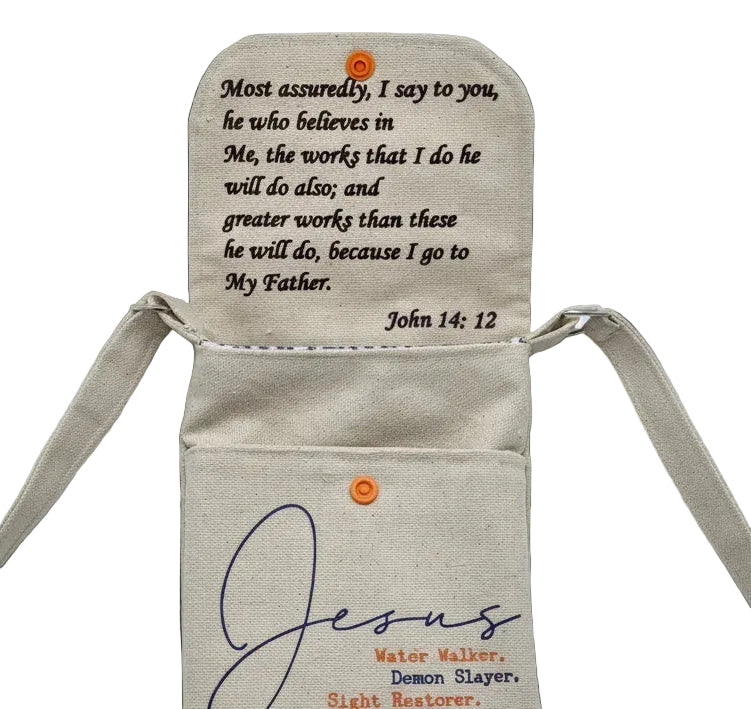 Most assuredly, I say to you,
he who believes in
Me, the works that I do he
will do also; and
greater works than these
he will do, because I go to
My Father.
John 14: 12
Jesus
Water Walker.
Demon Slayer.
Sight Restorer.